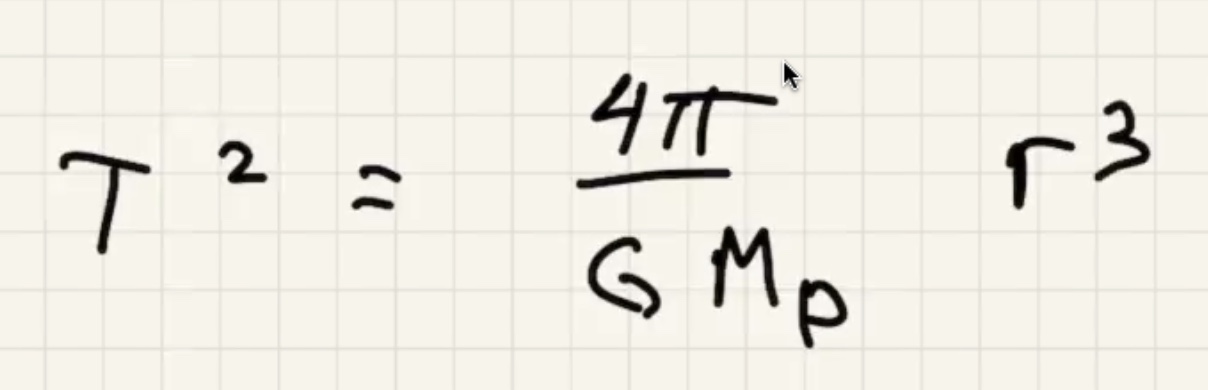 T² = 4π / G Mp r³